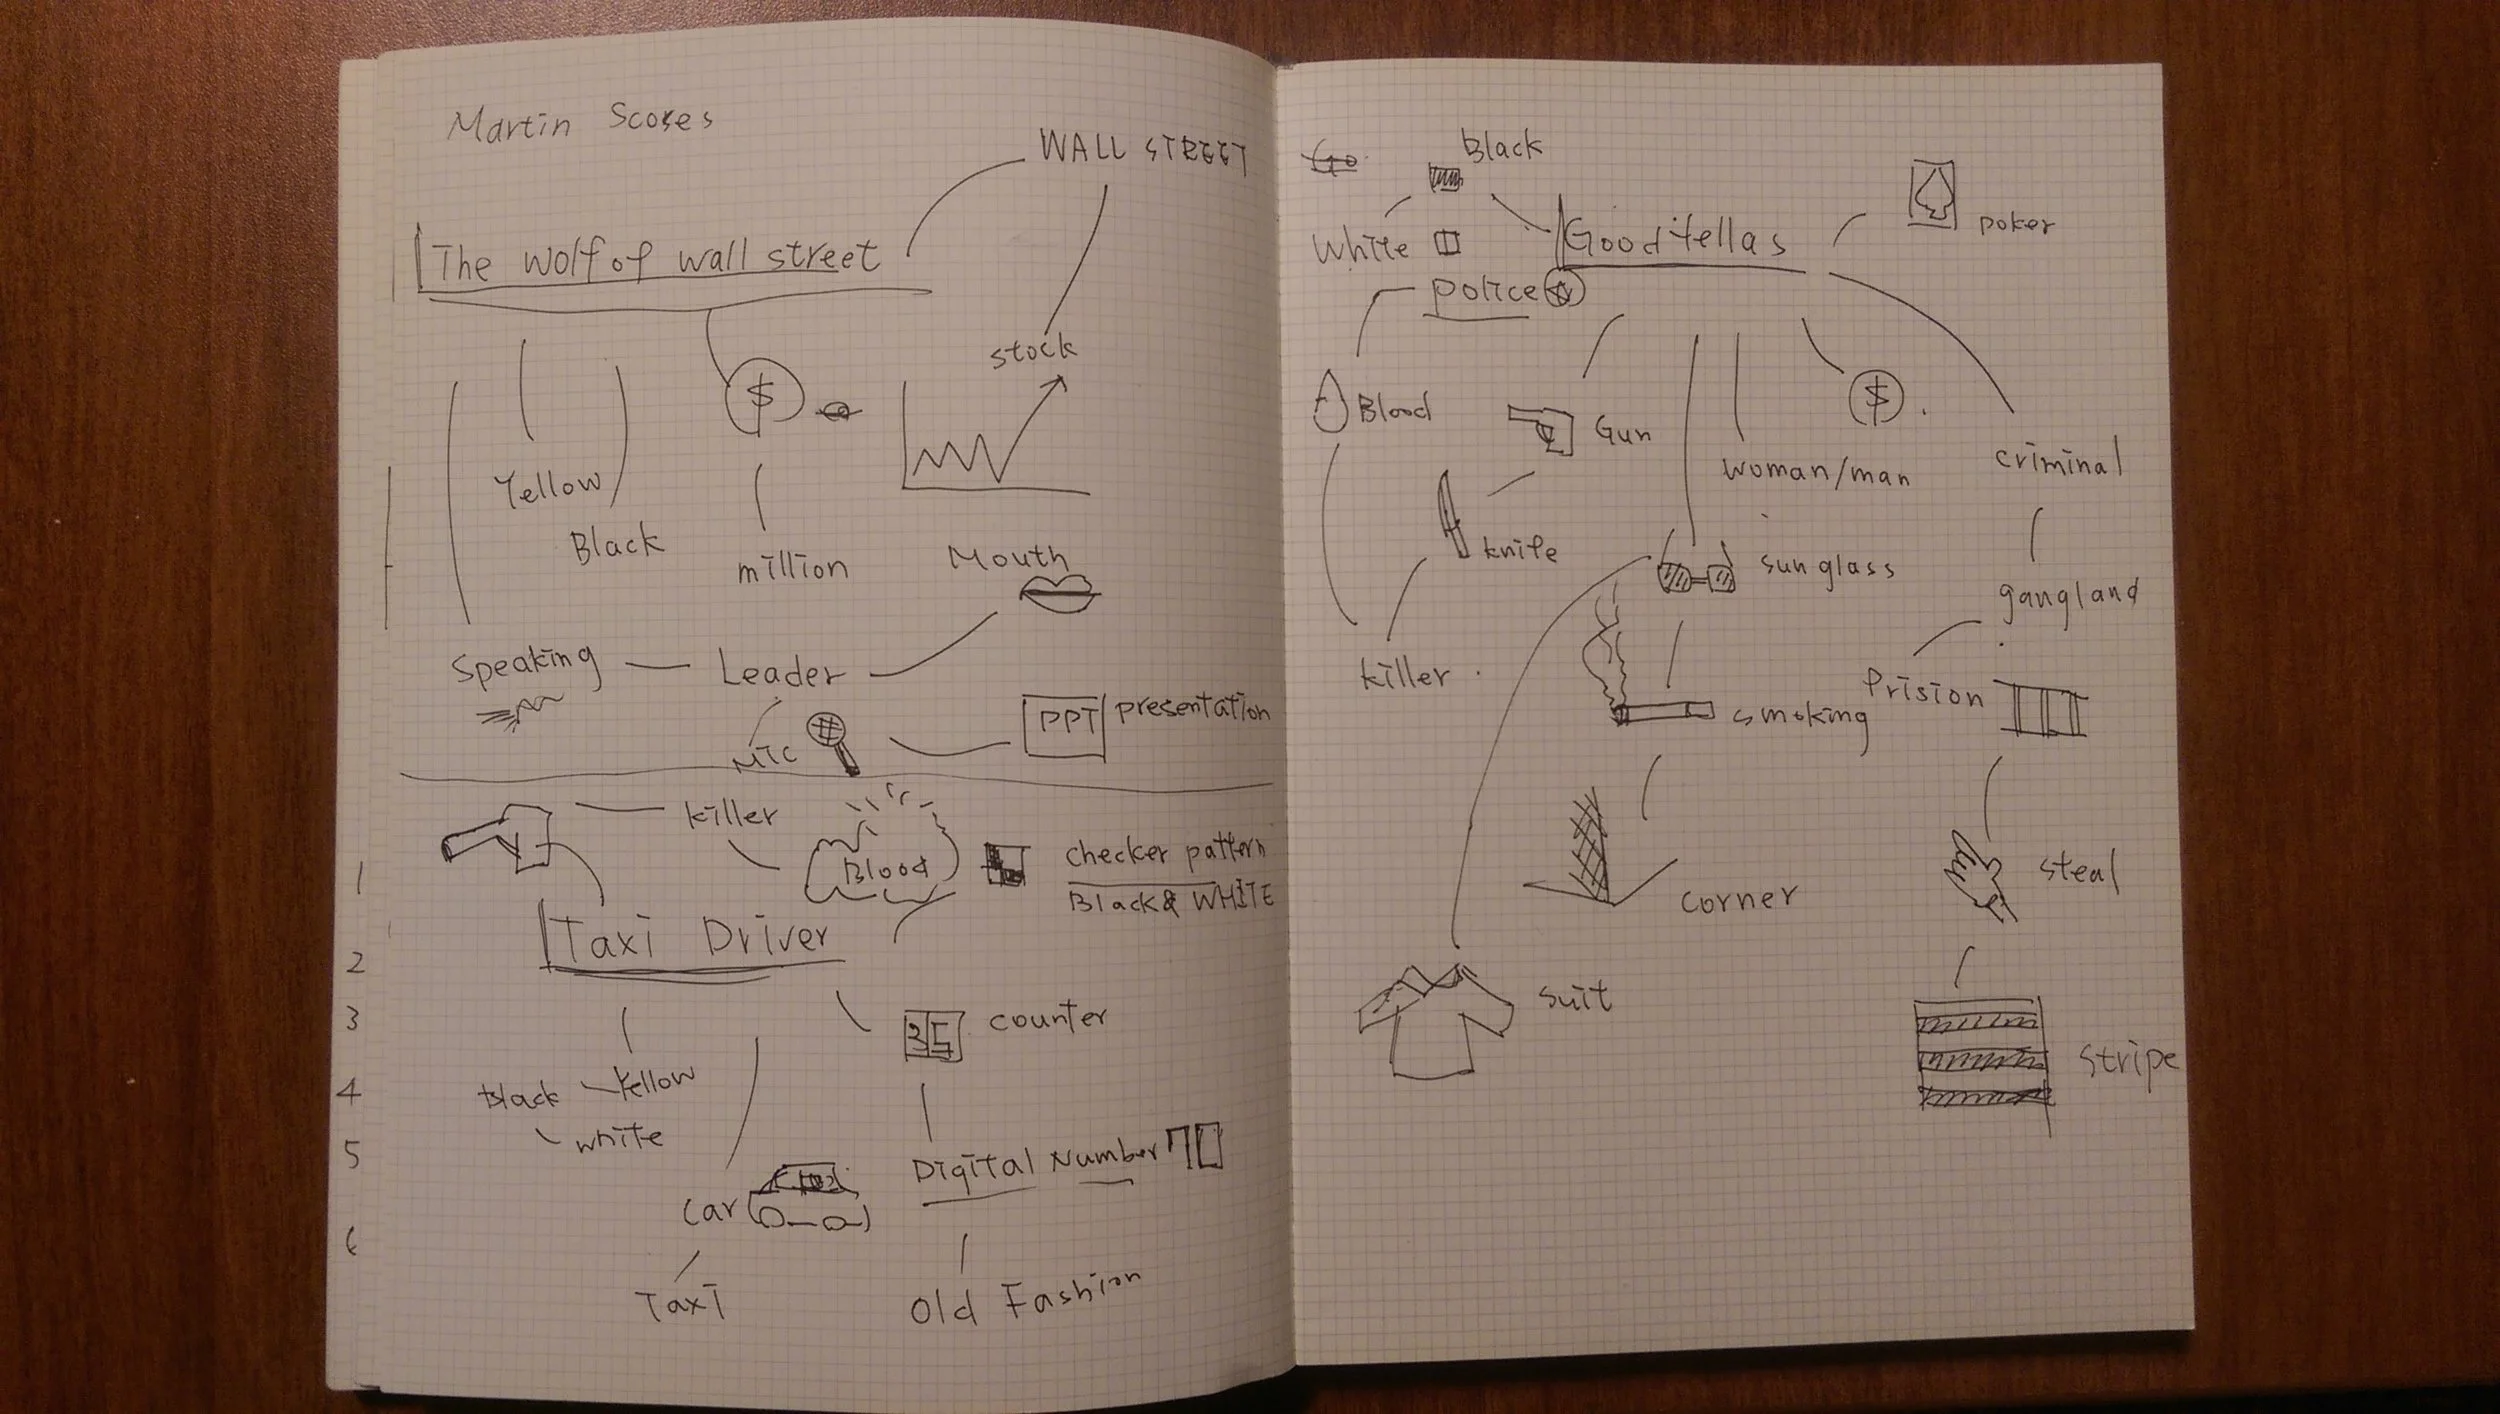 Martin Scoses
WALL STREET
The wolf of wall street
$
stock
Yellow
Black
million
Mouth
Speaking
Leader
MIC
PPT
presentation
killer
Blood
checker pattern
Black & WHITE
Taxi Driver
35
counter
Black
Yellow
white
Digital Number 70
car
Taxi
Old Fashion
1
2
3
4
5
6
Go
Black
White
Goodfellas
poker
police
Blood
Gun
$
woman/man
criminal
knife
sunglass
gangland
killer
Prision
smoking
steal
corner
suit
stripe